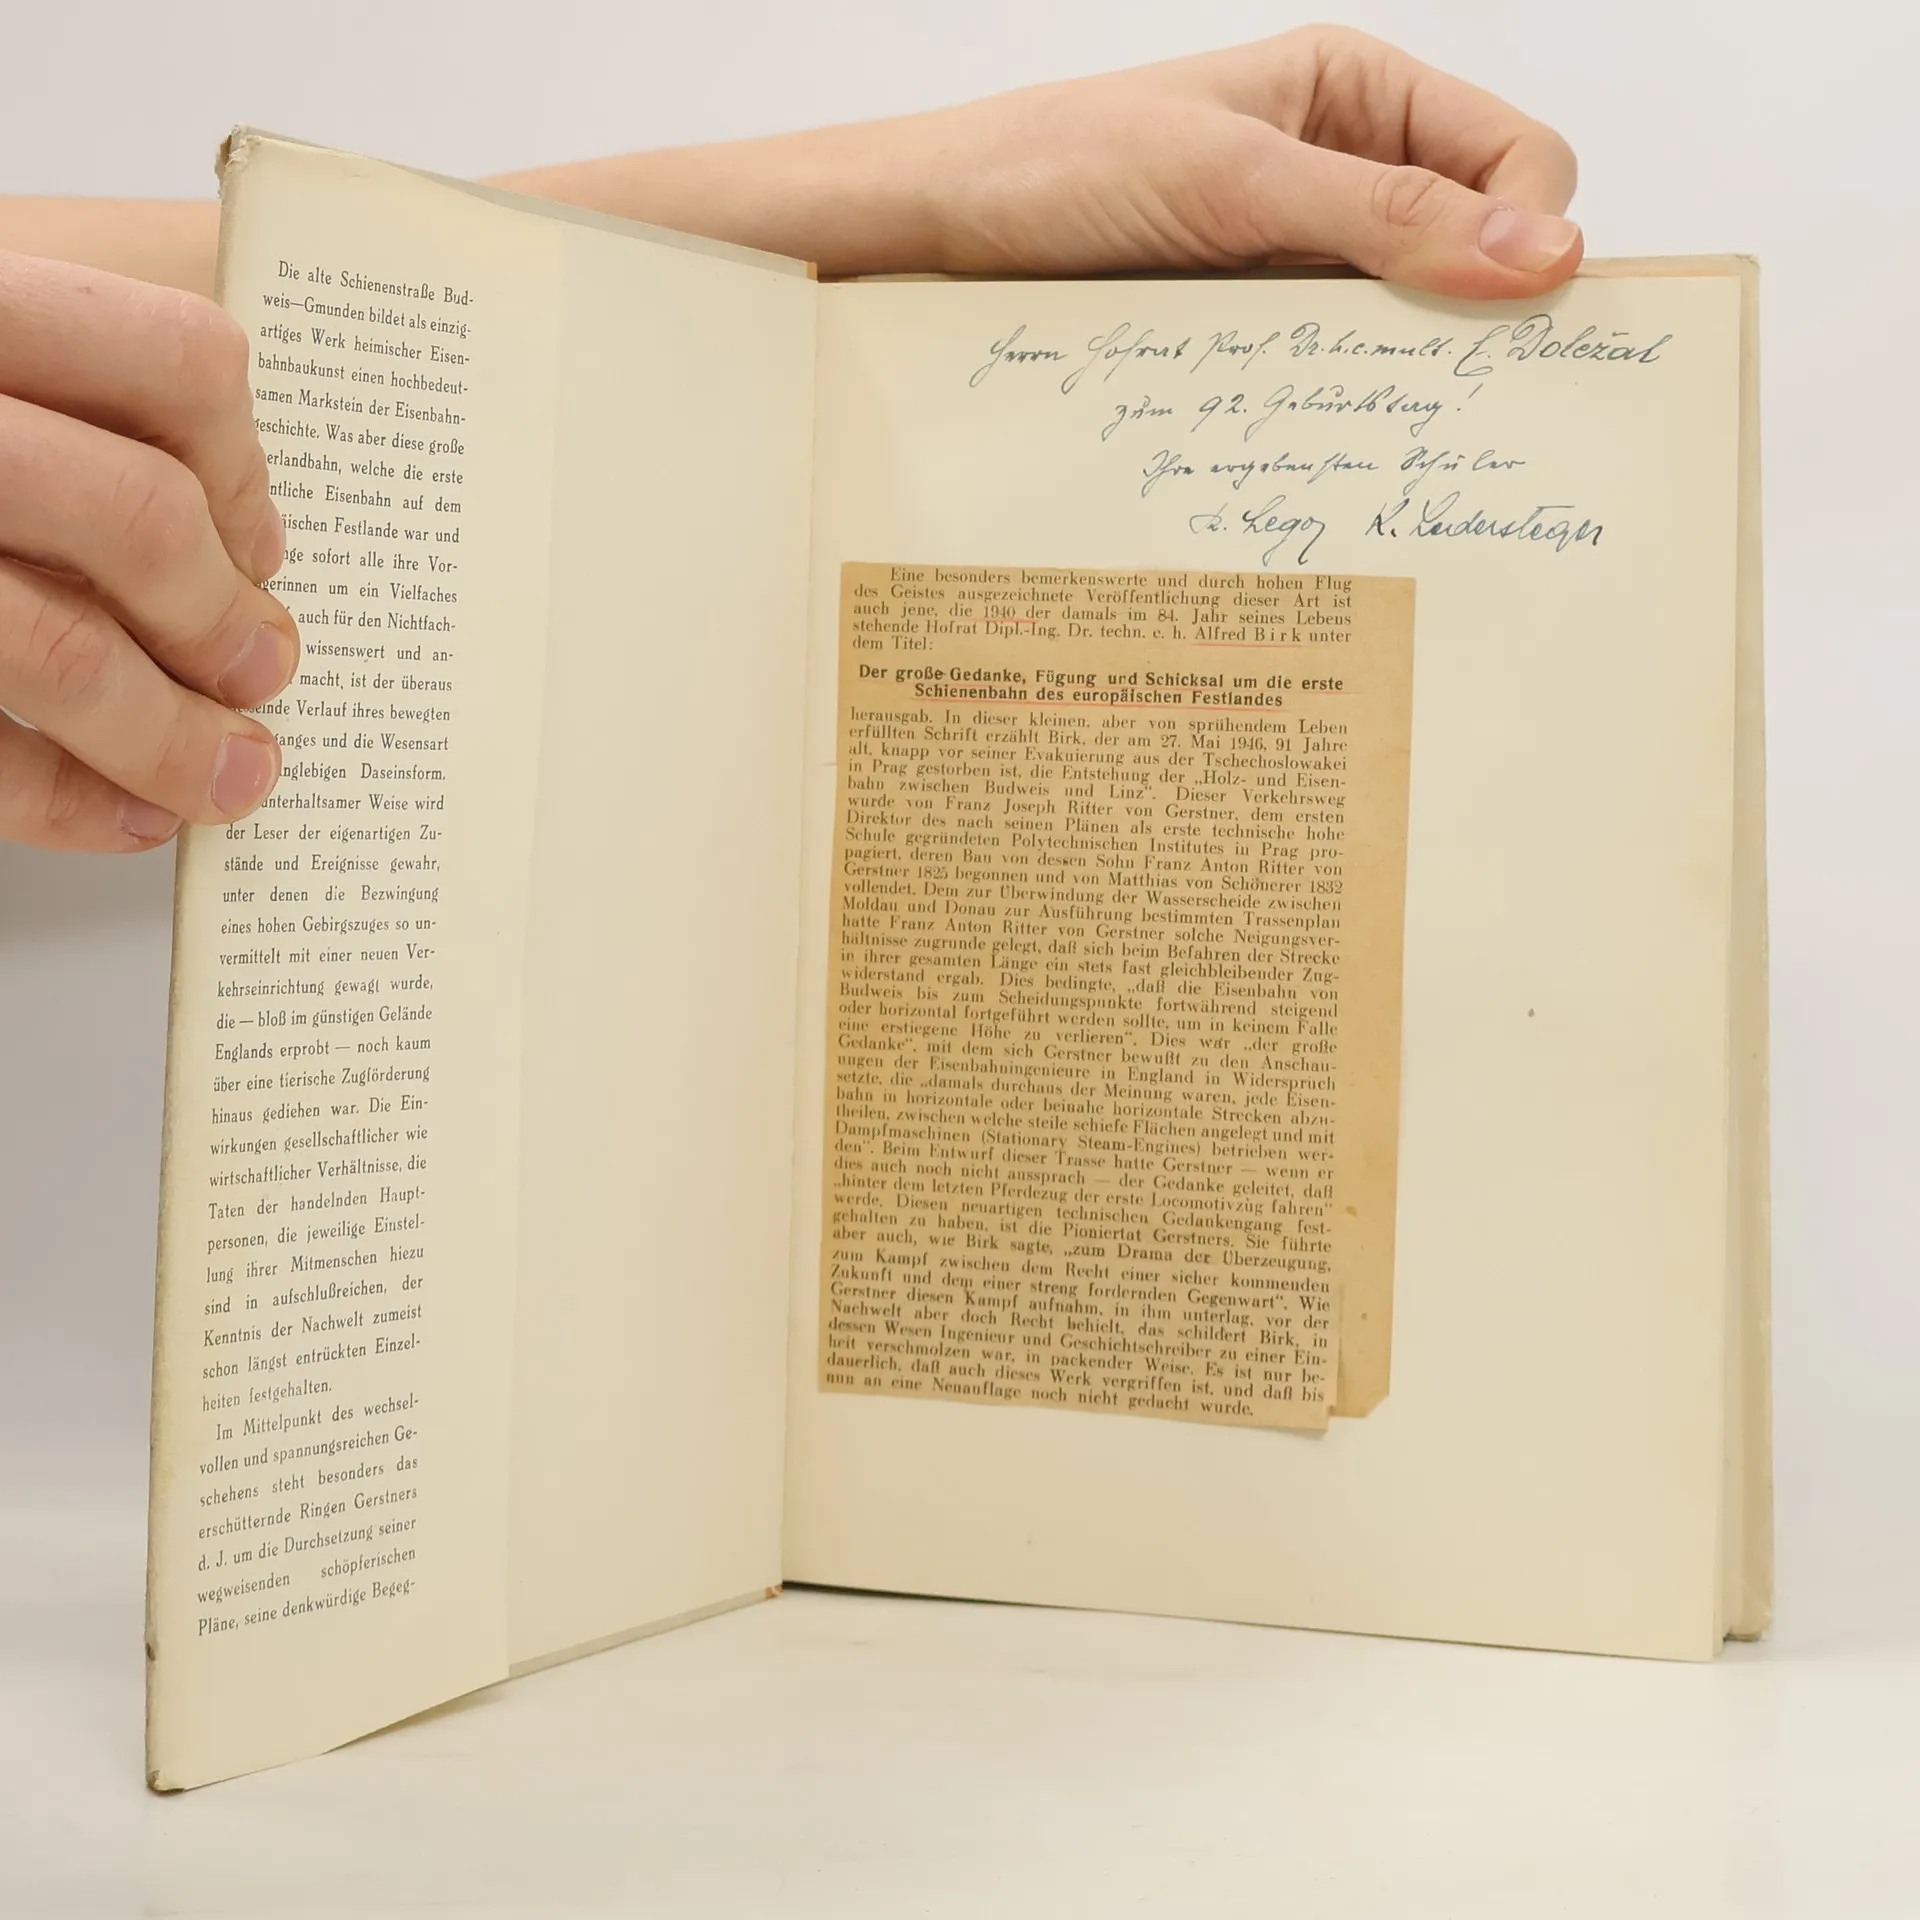 Die alte Schienenstraße Bud-
weis—Gmunden bildet als einzig-
artiges Werk heimischer Eisen-
bahnbaukunst einen hochbedeut-
samen Markstein der Eisenbahn-
geschichte. Was aber diese große
erlandbahn, welche die erste
ntliche Eisenbahn auf dem
äischen Festlande war und
nge sofort alle ihre Vor-
gerinnen um ein Vielfaches
auch für den Nichtfach-
wissenswert und an-
macht, ist der überaus
selnde Verlauf ihres bewegten
ganges und die Wesensart
nglebigen Daseinsform.
unterhaltsamer Weise wird
der Leser der eigenartigen Zu-
stände und Ereignisse gewahr,
unter denen die Bezwingung
eines hohen Gebirgszuges so un-
vermittelt mit einer neuen Ver-
kehrseinrichtung gewagt wurde,
die — bloß im günstigen Gelände
Englands erprobt — noch kaum
über eine tierische Zugförderung
hinaus gediehen war. Die Ein-
wirkungen gesellschaftlicher wie
wirtschaftlicher Verhältnisse, die
Taten der handelnden Haupt-
personen, die jeweilige Einstel-
lung ihrer Mitmenschen hiezu
sind in aufschlußreichen, der
Kenntnis der Nachwelt zumeist
schon längst entrückten Einzel-
heiten festgehalten.
Im Mittelpunkt des wechsel-
vollen und spannungsreichen Ge-
schehens steht besonders das
erschütternde Ringen Gerstners
d. J. um die Durchsetzung seiner
wegweisenden schöpferischen
Pläne, seine denkwürdige Begeg-
Herrn Hofrat Prof. Dr. h. c. mult. E. Doležal
zum 92. Geburtstag!
Ihre ergebensten Schüler
K. Lego K. Ledersteger
Eine besonders bemerkenswerte und durch hohen Flug
des Geistes ausgezeichnete Veröffentlichung dieser Art ist
auch jene, die 1940 der damals im 84. Jahr seines Lebens
stehende Hofrat Dipl.-Ing. Dr. techn. e. h. Alfred Birk unter
dem Titel:
Der große Gedanke, Fügung und Schicksal um die erste
Schienenbahn des europäischen Festlandes
herausgab. In dieser kleinen, aber von sprühendem Leben
erfüllten Schrift erzählt Birk, der am 27. Mai 1946, 91 Jahre
alt, knapp vor seiner Evakuierung aus der Tschechoslowakei
in Prag gestorben ist, die Entstehung der „Holz- und Eisen-
bahn zwischen Budweis und Linz“. Dieser Verkehrsweg
wurde von Franz Joseph Ritter von Gerstner, dem ersten
Direktor des nach seinen Plänen als erste technische hohe
Schule gegründeten Polytechnischen Institutes in Prag pro-
pagiert, deren Bau von dessen Sohn Franz Anton Ritter von
Gerstner 1825 begonnen und von Matthias von Schönerer 1832
vollendet. Dem zur Überwindung der Wasserscheide zwischen
Moldau und Donau zur Ausführung bestimmten Trassenplan
hatte Franz Anton Ritter von Gerstner solche Neigungsver-
hältnisse zugrunde gelegt, daß sich beim Befahren der Strecke
in ihrer gesamten Länge ein stets fast gleichbleibender Zug-
widerstand ergab. Dies bedingte, „daß die Eisenbahn von
Budweis bis zum Scheidungspunkte fortwährend steigend
oder horizontal fortgeführt werden sollte, um in keinem Falle
eine erstiegene Höhe zu verlieren“. Dies war „der große
Gedanke“, mit dem sich Gerstner bewußt zu den Anschau-
ungen der Eisenbahningenieure in England in Widerspruch
setzte, die „damals durchaus der Meinung waren, jede Eisen-
bahn in horizontale oder beinahe horizontale Strecken abzu-
theilen, zwischen welche steile schiefe Flächen angelegt und mit
Dampfmaschinen (Stationary Steam-Engines) betrieben wer-
den“. Beim Entwurf dieser Trasse hatte Gerstner — wenn er
dies auch noch nicht aussprach — der Gedanke geleitet, daß
„hinter dem letzten Pferdezug der erste Locomotivzug fahren“
werde. Diesen neuartigen technischen Gedankengang fest-
gehalten zu haben, ist die Pioniertat Gerstners. Sie führte
aber auch, wie Birk sagte, „zum Drama der Überzeugung,
zum Kampf zwischen dem Recht einer sicher kommenden
Zukunft und dem einer streng fordernden Gegenwart“. Wie
Gerstner diesen Kampf aufnahm, in ihm unterlag, vor der
Nachwelt aber doch Recht behielt, das schildert Birk, in
dessen Wesen Ingenieur und Geschichtschreiber zu einer Ein-
heit verschmolzen war, in packender Weise. Es ist nur be-
dauerlich, daß auch dieses Werk vergriffen ist, und daß bis
nun an eine Neuauflage noch nicht gedacht wurde.